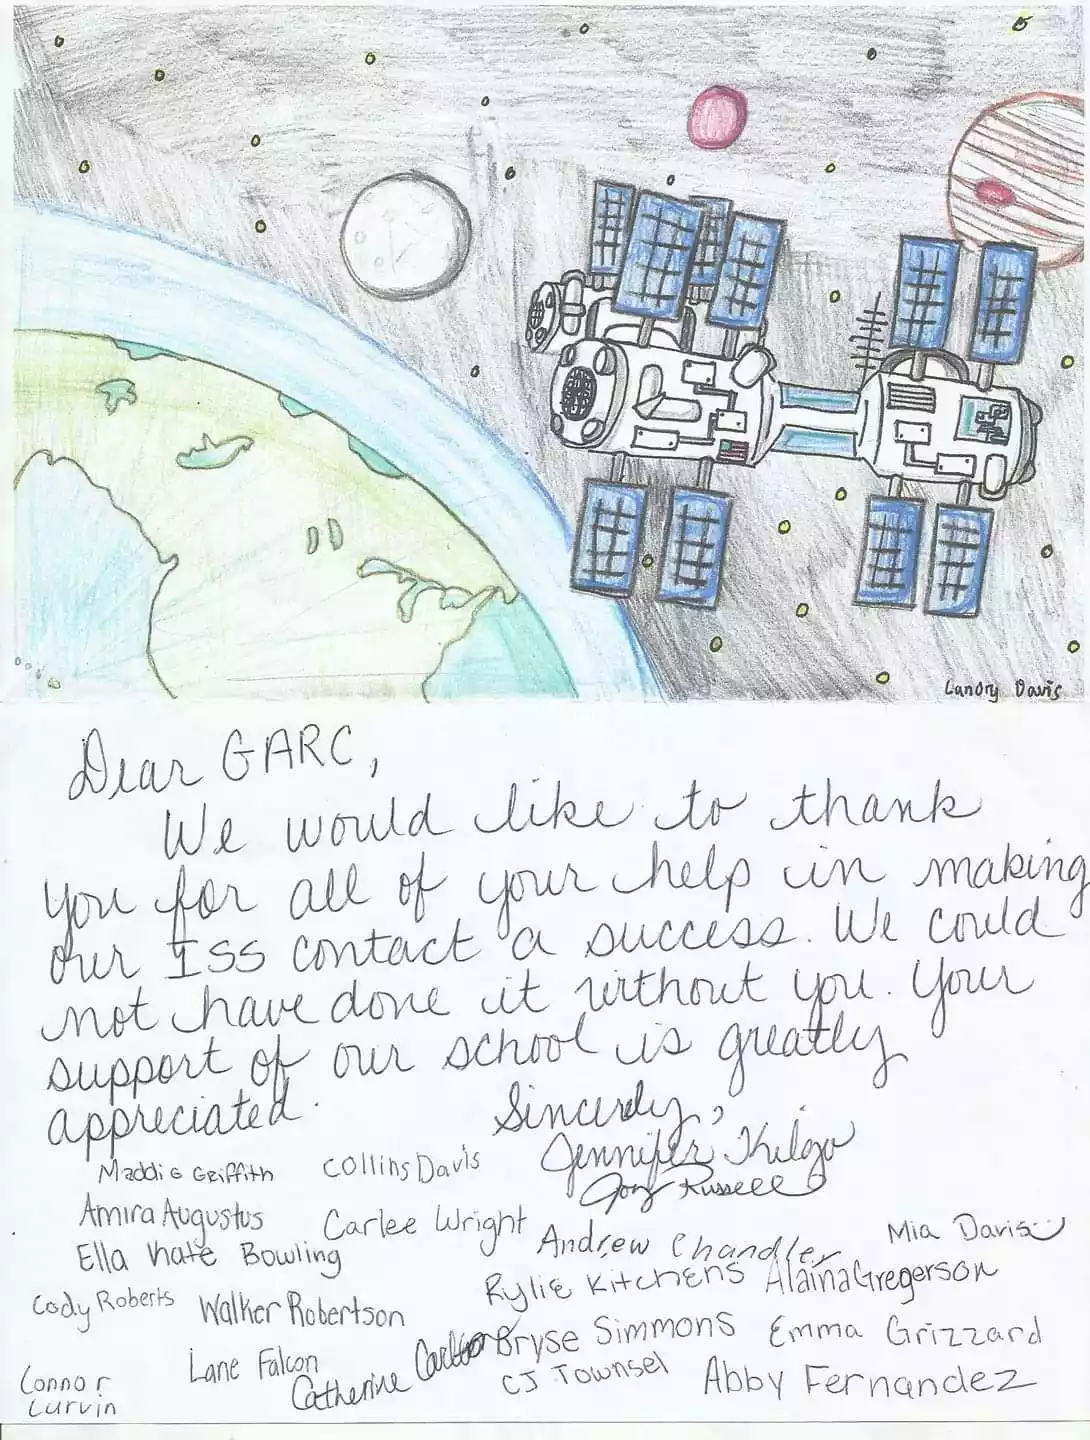 Landry Davis
Dear GARC,
We would like to thank
you for all of your help in making
our ISS contact a success. We could
not have done it without you. Your
support of our school is greatly
appreciated.
Sincerely,
Jennifer Kilgo
Joey Russell
Maddie Griffith
Collins Davis
Amira Augustus
Carlee Wright
Andrew Chandler
Mia Davis
Ella Kate Bowling
Rylie Kitchens
Alaina Gregerson
Cody Roberts
Walker Robertson
Bryse Simmons
Emma Grizzard
Lane Falcon
Catherine
CJ Townsel
Abby Fernandez
Connor
Curvin